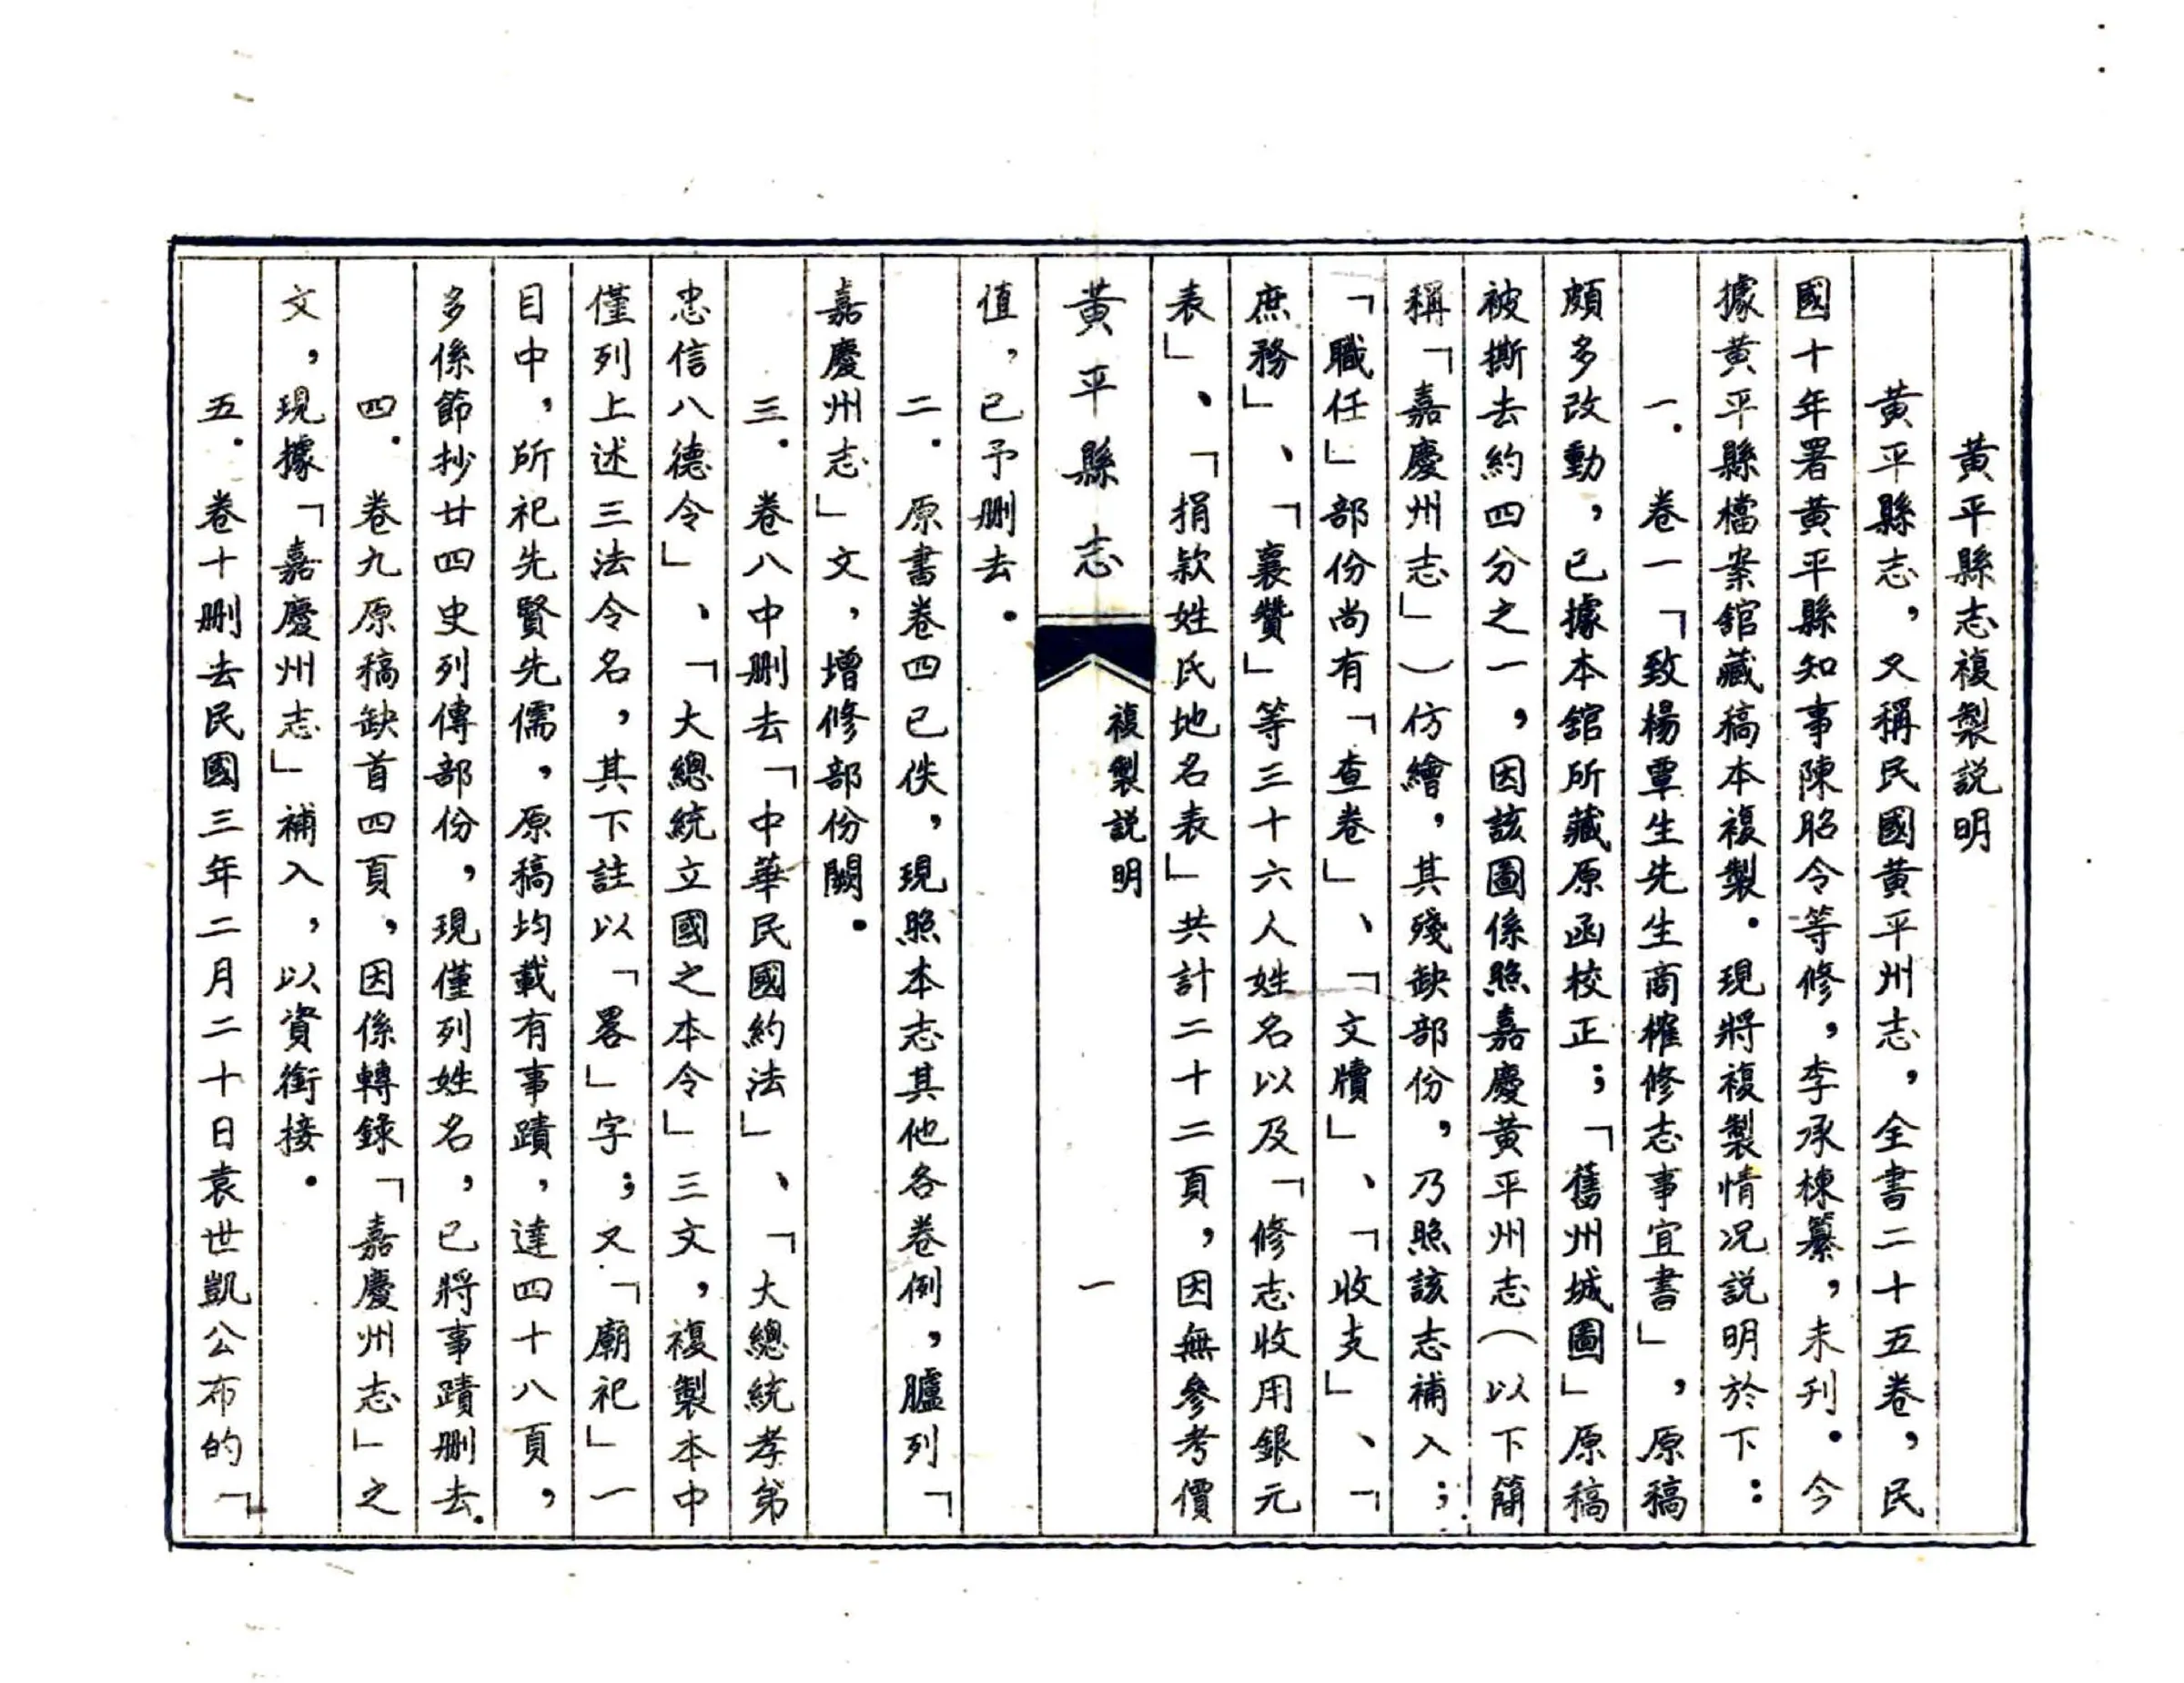 黃平縣志複製説明
黃平縣志，又稱民國黃平州志，全書二十五卷，民
國十年署黃平縣知事陳昭令等修，李承棟纂，未刋。今
據黃平縣檔案舘藏稿本複製。現將複製情况説明於下：
一．卷一「致楊覃生先生商榷修志事宜書」，原稿
頗多改動，已據本舘所藏原函校正；「舊州城圖」原稿
被撕去約四分之一，因該圖係照嘉慶黃平州志（以下簡
稱「嘉慶州志」）仿繪，其殘缺部份，乃照該志補入；
「職任」部份尚有「查卷」、「文牘」、「收支」、「
庶務」、「襄贊」等三十六人姓名以及「修志收用銀元
表」、「捐款姓氏地名表」共計二十二頁，因無參考價
黃平縣志
複製説明
一
值，已予删去。
二．原書卷四已佚，現照本志其他各卷例，臚列「
嘉慶州志」文，增修部份闕。
三．卷八中删去「中華民國約法」、「大總統孝弟
忠信八德令」、「大總統立國之本令」三文，複製本中
僅列上述三法令名，其下註以「畧」字；又「廟祀」一
目中，所祀先賢先儒，原稿均載有事蹟，達四十八頁，
多係節抄廿四史列傳部份，現僅列姓名，已將事蹟删去．
四．卷九原稿缺首四頁，因係轉錄「嘉慶州志」之
文，現據「嘉慶州志」補入，以資銜接。
五．卷十删去民國三年二月二十日袁世凱公布的「